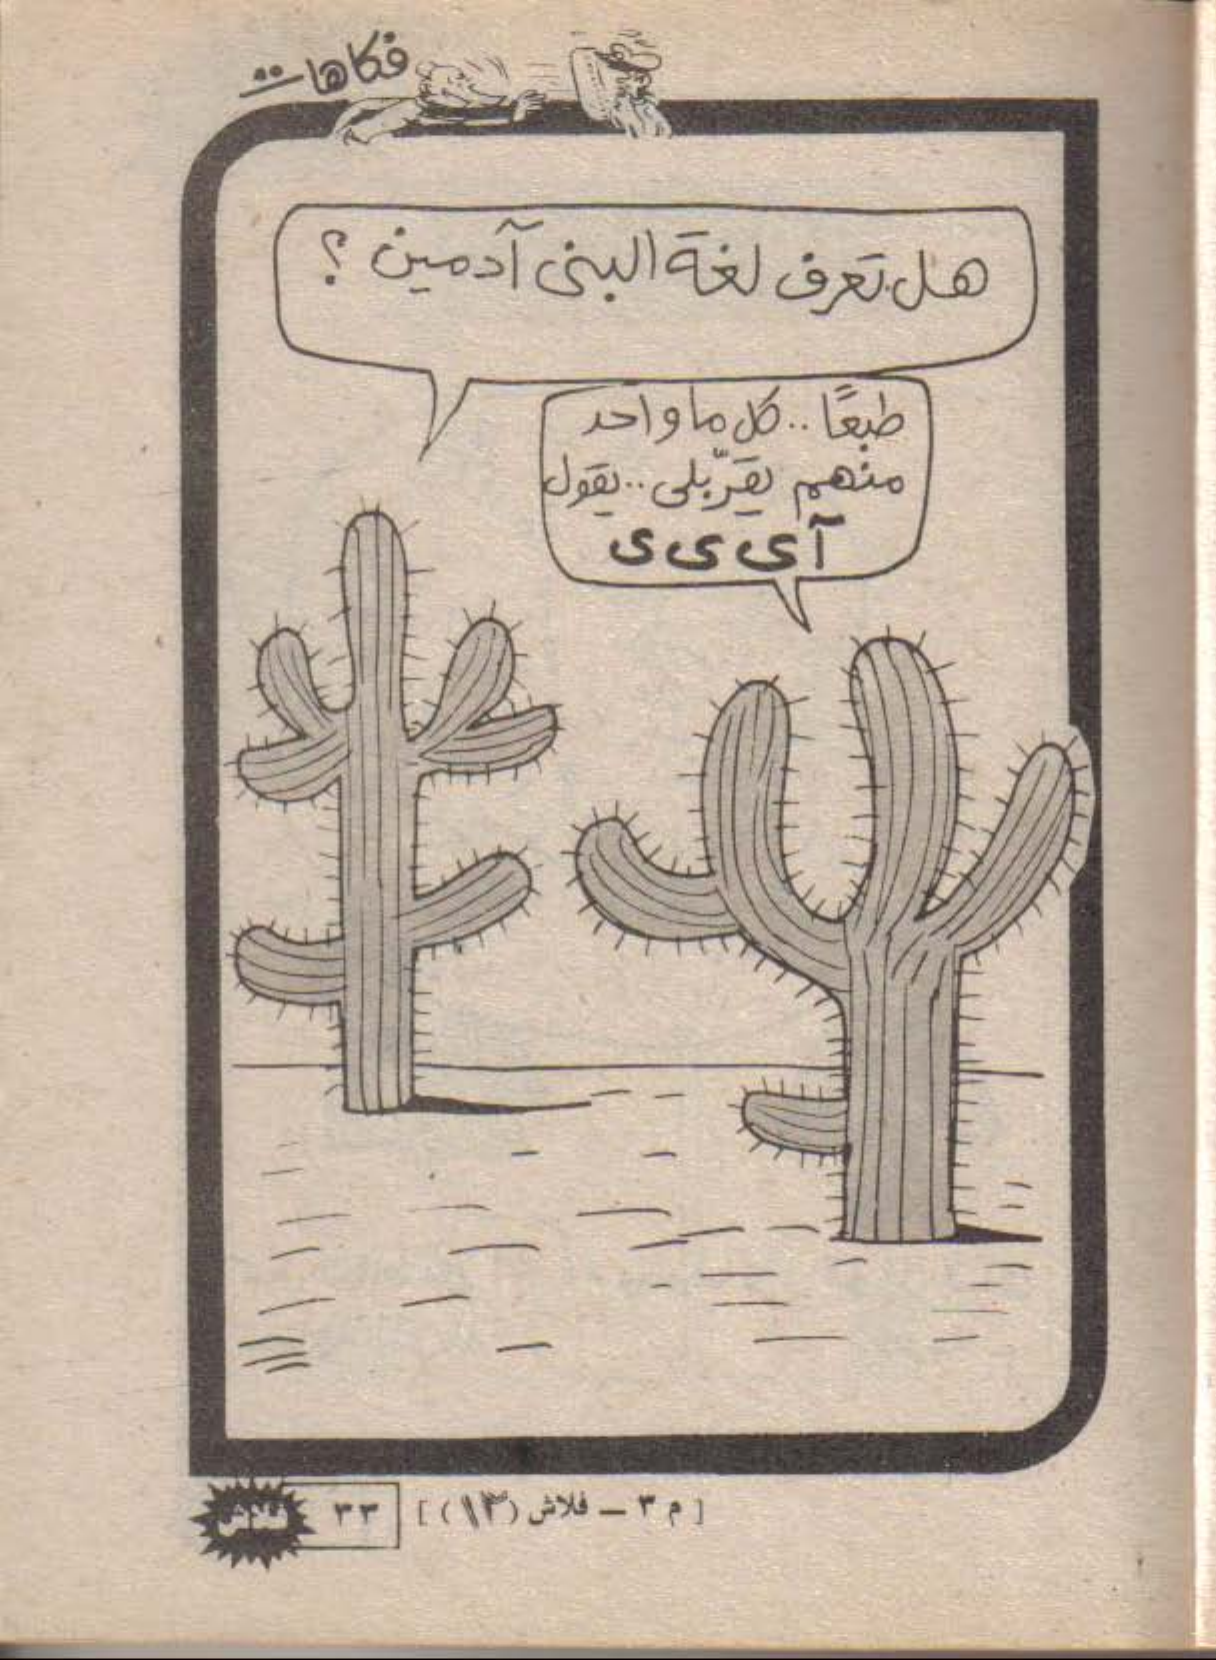 فكاهات
هل تعرف لغة البنى آدمين ؟
طبعًا .. كل ما واحد
منهم يقرّبلى .. يقول
آى ى ى
[ م ٣ – فلاش (١٣) ]
٣٣
فلاش